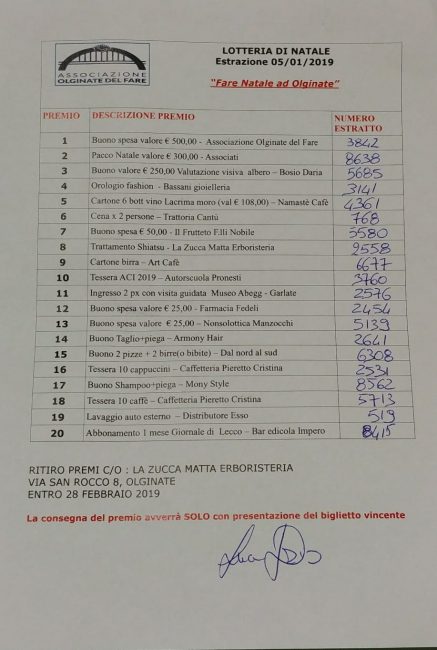 ASSOCIAZIONE
OLGINATE DEL FARE
LOTTERIA DI NATALE
Estrazione 05/01/2019
"Fare Natale ad Olginate"
PREMIO DESCRIZIONE PREMIO NUMERO ESTRATTO
1 Buono spesa valore € 500,00 - Associazione Olginate del Fare 3842
2 Pacco Natale valore € 300,00 - Associati 8638
3 Buono valore € 250,00 Valutazione visiva albero – Bosio Daria 5685
4 Orologio fashion - Bassani gioielleria 3141
5 Cartone 6 bott vino Lacrima moro (val € 108,00) – Namastè Cafè 4361
6 Cena x 2 persone – Trattoria Cantù 768
7 Buono spesa € 50,00 - Il Frutteto F.lli Nobile 5580
8 Trattamento Shiatsu - La Zucca Matta Erboristeria 2558
9 Cartone birra – Art Cafè 6677
10 Tessera ACI 2019 – Autorscuola Pronesti 3760
11 Ingresso 2 px con visita guidata Museo Abegg - Garlate 2576
12 Buono spesa valore € 25,00 - Farmacia Fedeli 2454
13 Buono spesa valore € 25,00 – Nonsolottica Manzocchi 5139
14 Buono Taglio+piega – Armony Hair 2641
15 Buono 2 pizze + 2 birre(o bibite) – Dal nord al sud 6308
16 Tessera 10 cappuccini – Caffetteria Pieretto Cristina 2531
17 Buono Shampoo+piega – Mony Style 8562
18 Tessera 10 caffè – Caffetteria Pieretto Cristina 5713
19 Lavaggio auto esterno – Distributore Esso 519
20 Abbonamento 1 mese Giornale di Lecco – Bar edicola Impero 8415
RITIRO PREMI C/O : LA ZUCCA MATTA ERBORISTERIA
VIA SAN ROCCO 8, OLGINATE
ENTRO 28 FEBBRAIO 2019
La consegna del premio avverrà SOLO con presentazione del biglietto vincente